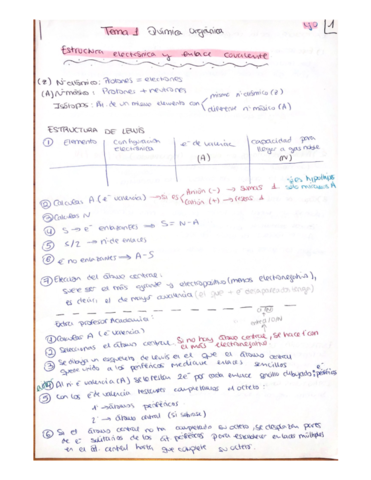 Tema 1 Química orgánica
1
Estructura electrónica y enlace covalente
(Z) Nº atómico: Protones = electrones
(A) Nº másico: Protones + neutrones
Isótopos: At. de un mismo elemento con mismo nº atómico (Z)
diferente nº másico (A)
ESTRUCTURA DE LEWIS
① Elemento Configuración electrónica e⁻ de valencia (A) capacidad para llegar a gas noble (N)
② Calcular A (e⁻ valencia) → si es Anión (-) → sumas 1.
Catión (+) → restas 1
③ Calcular N
④ S → e⁻ enlazantes → S = N-A
⑤ S/2 → nº de enlaces
⑥ e⁻ no enlazantes → A-S
⑦ Elección del átomo central:
suele ser el más electropositivo (menos electronegativo),
es decir, el de mayor covalencia
Profesor Academia:
① Calcular A (e⁻ valencia)
② Seleccionar el átomo central. Si no hay átomo central, se hace con el más electronegativo
③ Se dibuja un esquema de lewis en el que el átomo central
quede unido a los periféricos mediante enlaces sencillos
④ Al nº e⁻ valencia (A) se le restan 2e⁻ por cada enlace sencillo dibujado
⑤ Con los e⁻ de valencia restantes completamos el octeto:
periféricos
átomo central (si sobran)
⑥ Si el átomo central no ha completado su octeto, se desplazan pares
de e⁻ solitarios de los át. periféricos para establecer enlaces múltiples
en el át. central hasta que complete su octeto.